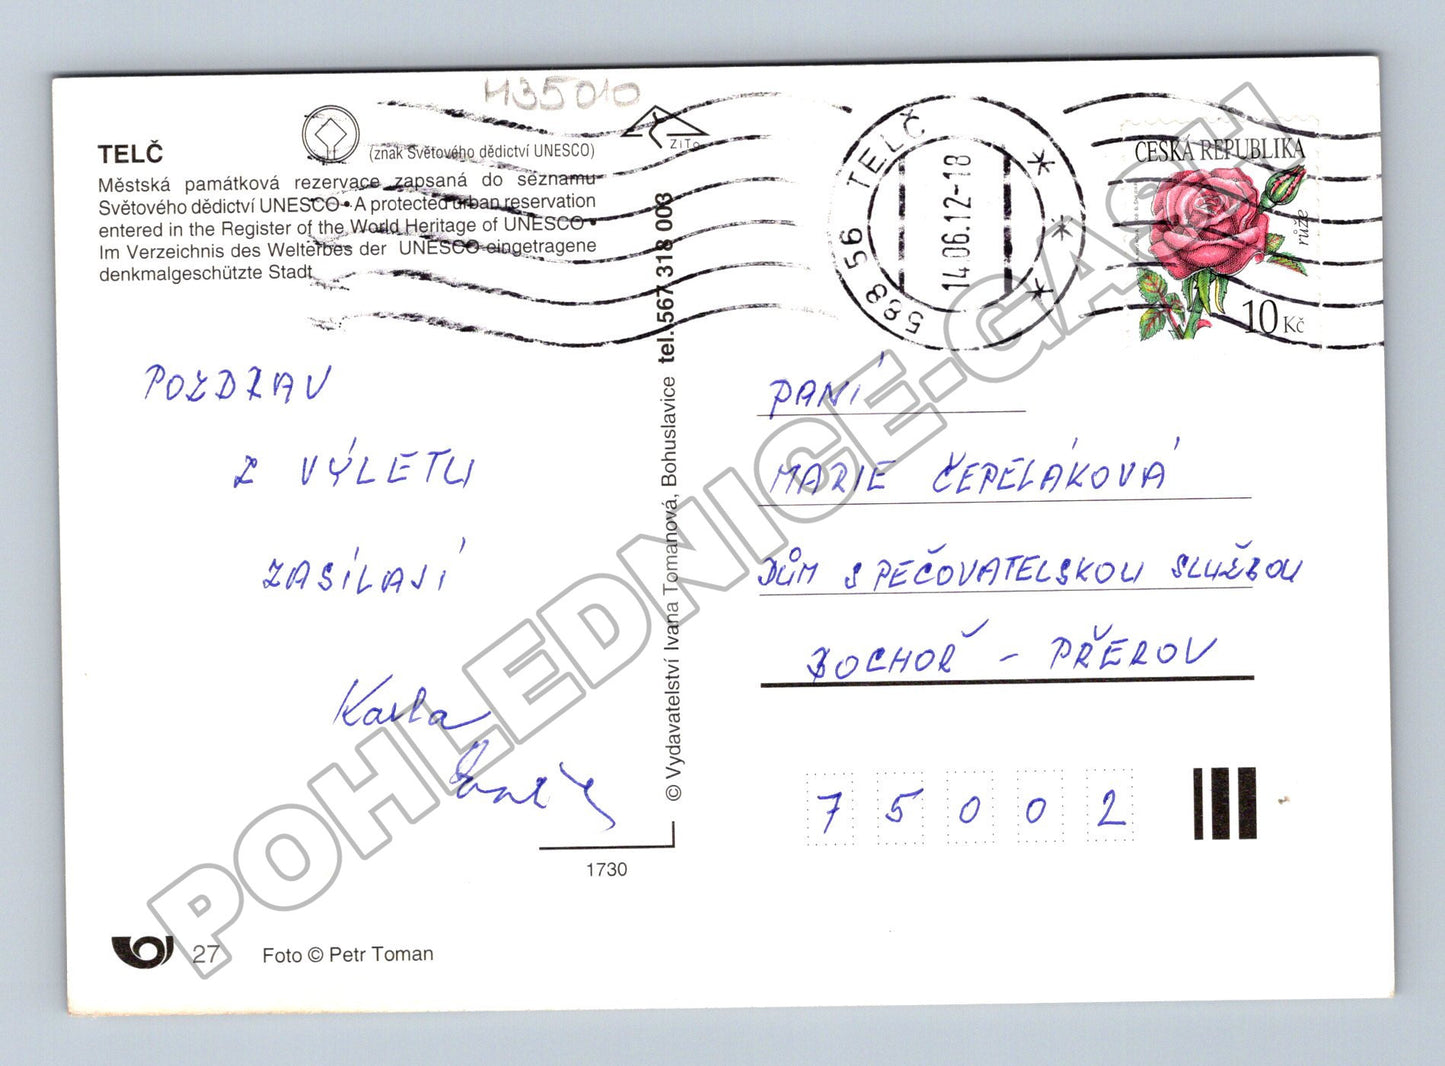 H35010
TELČ
(znak Světového dědictví UNESCO)
ZiTo
Městská památková rezervace zapsaná do seznamu
Světového dědictví UNESCO • A protected urban reservation
entered in the Register of the World Heritage of UNESCO •
Im Verzeichnis des Welterbes der UNESCO eingetragene
denkmalgeschützte Stadt
588 56 TELČ
14.06.12-18
ČESKÁ REPUBLIKA
růže
10 Kč
POZDRAV
Z VÝLETU
ZASÍLAJÍ
Karla
© Vydavatelství Ivana Tomanová, Bohuslavice tel. 567 318 003
PANÍ
MARIE ČEPELÁKOVÁ
DŮM S PEČOVATELSKOU SLUŽBOU
BOCHOŘ - PŘEROV
7 5 0 0 2
1730
27
Foto © Petr Toman
POHLEDNICE.CASH